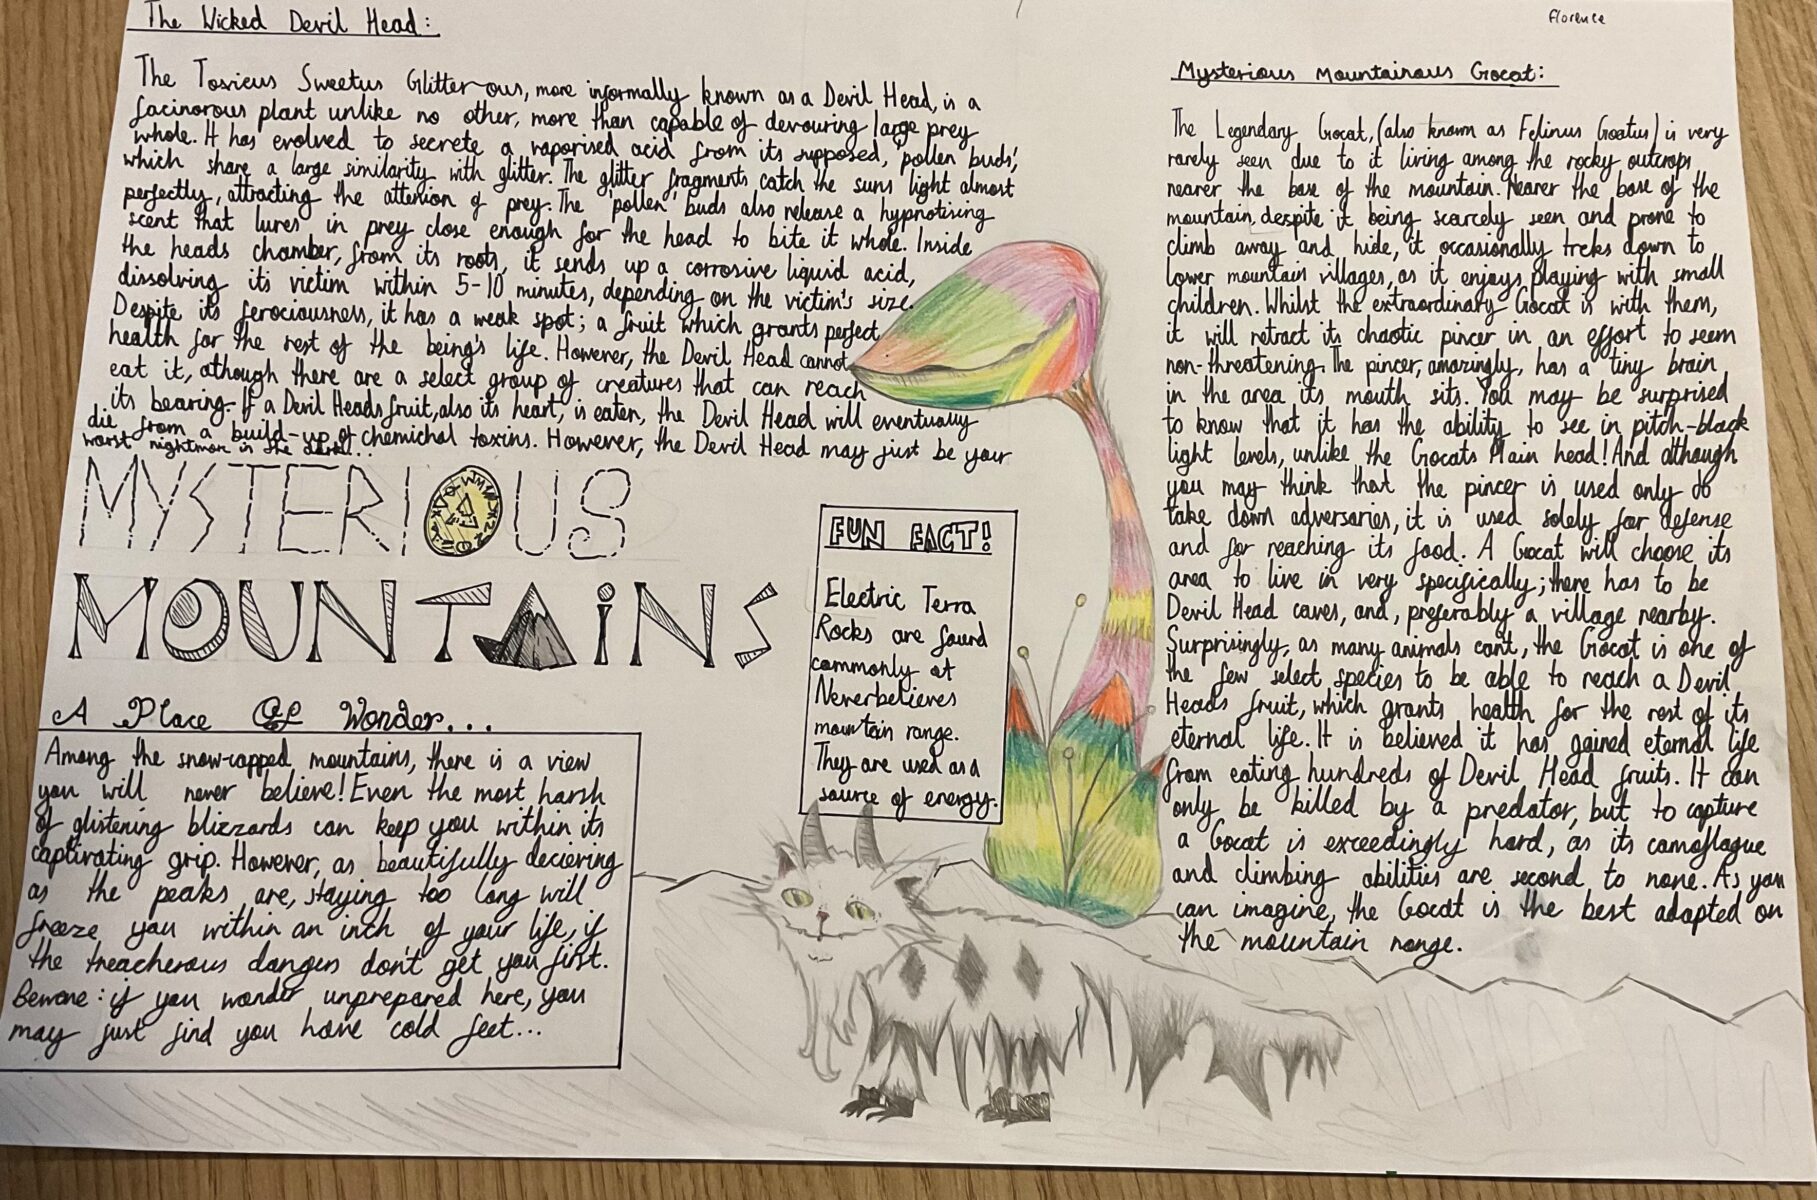 The Wicked Devil Head:
The Toxicus Sweetus Glitter-ous, more informally known as a Devil Head, is a
facinorous plant unlike no other, more than capable of devouring large prey
whole. It has evolved to secrete a vaporised acid from its supposed, 'pollen buds',
which share a large similarity with glitter. The glitter fragments catch the suns light almost
perfectly, attracting the attention of prey. The 'pollen' buds also release a hypnotising
scent that lures in prey close enough for the head to bite it whole. Inside
the heads chamber, from its roots, it sends up a corrosive liquid acid,
dissolving its victim within 5-10 minutes, depending on the victim's size.
Despite its ferociousness, it has a weak spot; a fruit which grants perfect
health for the rest of the being's life. However, the Devil Head cannot
eat it, athough there are a select group of creatures that can reach
its bearing. If a Devil Heads fruit, also its heart, is eaten, the Devil Head will eventually
die from a build-up of chemichal toxins. However, the Devil Head may just be your
worst nightmare in the dark...
MYSTERIOUS
MOUNTAiNS
A Place Of Wonder...
Among the snow-capped mountains, there is a view
you will never believe! Even the most harsh
of glistening blizzards can keep you within its
captivating grip. However, as beautifully decieving
as the peaks are, staying too long will
freeze you within an inch of your life, if
the treacherous dangers don't get you first.
Beware: if you wander unprepared here, you
may just find you have cold feet...
FUN FACT!
Electric Terra
Rocks are found
commonly at
Neverbelieves
mountain range.
They are used as a
source of energy.
Florence
Mysterious Mountainous Gocat:
The Legendary Gocat, (also known as Felinus Goatus) is very
rarely seen due to it living among the rocky outcrops
nearer the base of the mountain. Nearer the base of the
mountain, despite it being scarcely seen and prone to
climb away and hide, it occasionally treks down to
lower mountain villages, as it enjoys playing with small
children. Whilst the extraordinary Gocat is with them,
it will retract its chaotic pincer in an effort to seem
non-threatening. The pincer, amazingly, has a tiny brain
in the area its mouth sits. You may be surprised
to know that it has the ability to see in pitch-black
light levels, unlike the Gocats Main head! And although
you may think that the pincer is used only to
take down adversaries, it is used solely for defense
and for reaching its food. A Gocat will choose its
area to live in very specifically; there has to be
Devil Head caves, and, preferably a village nearby.
Surprisingly, as many animals cant, the Gocat is one of
the few select species to be able to reach a Devil
Heads fruit, which grants health for the rest of its
eternal life. It is believed it has gained eternal life
from eating hundreds of Devil Head fruits. It can
only be killed by a predator, but to capture
a Gocat is exceedingly hard, as its camoflague
and climbing abilities are second to none. As you
can imagine, the Gocat is the best adapted on
the mountain range.